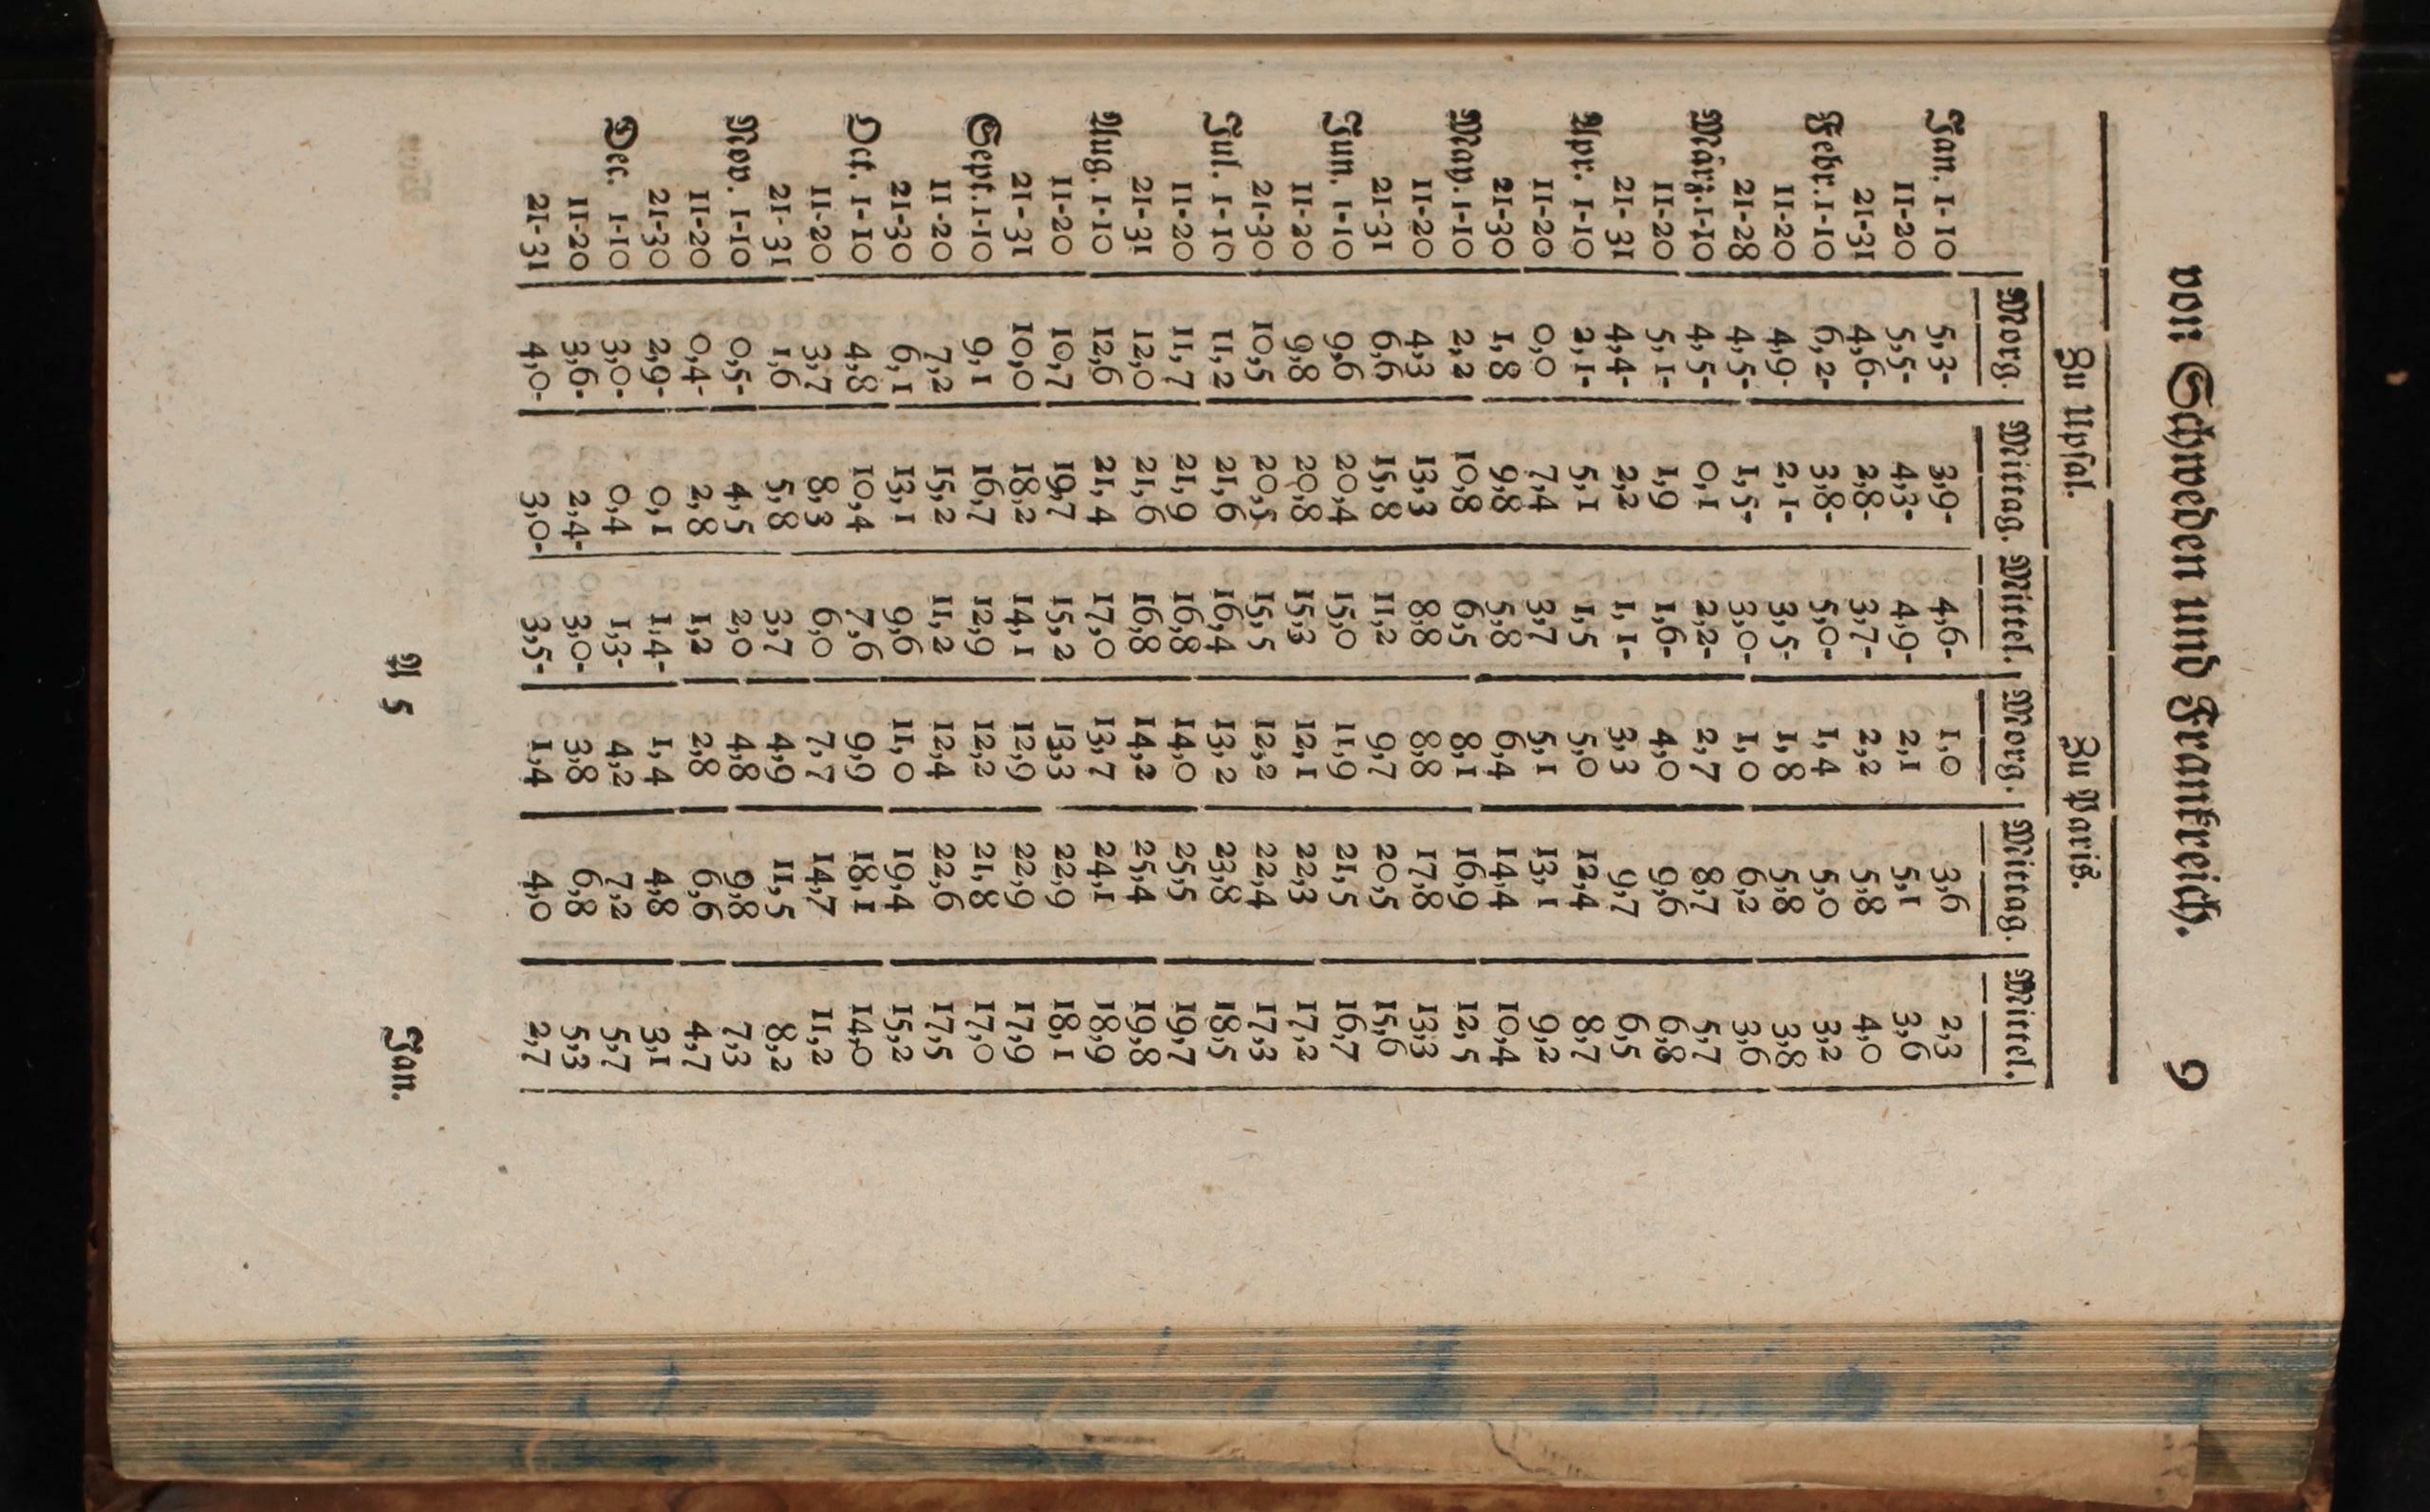 von Schweden und Frankreich. 9
Zu Upsal. Zu Paris.
Morg. Mittag. Mittel. Morg. Mittag. Mittel.
Jan. 1-10 5,3- 3,9- 4,6- 1,0 3,6 2,3
11-20 5,5- 4,3- 4,9- 2,1 5,1 3,6
21-31 4,6- 2,8- 3,7- 2,2 5,8 4,0
Febr. 1-10 6,2- 3,8- 5,0- 1,4 5,0 3,2
11-20 4,9- 2,1- 3,5- 1,8 5,8 3,8
21-28 4,5- 1,5- 3,0- 1,0 6,2 3,6
März. 1-10 4,5- 0,1 2,2- 2,7 8,7 5,7
11-20 5,1- 1,9 1,6- 4,0 9,6 6,8
21-31 4,4- 2,2 1,1- 3,3 9,7 6,5
Apr. 1-10 2,1- 5,1 1,5 5,0 12,4 8,7
11-20 0,0 7,4 3,7 5,1 13,1 9,2
21-30 1,8 9,8 5,8 6,4 14,4 10,4
May. 1-10 2,2 10,8 6,5 8,1 16,9 12,5
11-20 4,3 13,3 8,8 8,8 17,8 13,3
21-31 6,6 15,8 11,2 9,7 20,5 15,6
Jun. 1-10 9,6 20,4 15,0 11,9 21,5 16,7
11-20 9,8 20,8 15,3 12,1 22,3 17,2
21-30 10,5 20,5 15,5 12,2 22,4 17,3
Jul. 1-10 11,2 21,6 16,4 13,2 23,8 18,5
11-20 11,7 21,9 16,8 14,0 25,5 19,7
21-31 12,0 21,6 16,8 14,2 25,4 19,8
Aug. 1-10 12,6 21,4 17,0 13,7 24,1 18,9
11-20 10,7 19,7 15,2 13,3 22,9 18,1
21-31 10,0 18,2 14,1 12,9 22,9 17,9
Sept. 1-10 9,1 16,7 12,9 12,2 21,8 17,0
11-20 7,2 15,2 11,2 12,4 22,6 17,5
21-30 6,1 13,1 9,6 11,0 19,4 15,2
Oct. 1-10 4,8 10,4 7,6 9,9 18,1 14,0
11-20 3,7 8,3 6,0 7,7 14,7 11,2
21-31 1,6 5,8 3,7 4,9 11,5 8,2
Nov. 1-10 0,5- 4,5 2,0 4,8 9,8 7,3
11-20 0,4- 2,8 1,2 2,8 6,6 4,7
21-30 2,9- 0,1 1,4- 1,4 4,8 3,1
Dec. 1-10 3,0- 0,4 1,3- 4,2 7,2 5,7
11-20 3,6- 2,4- 3,0- 3,8 6,8 5,3
21-31 4,0- 3,0- 3,5- 1,4 4,0 2,7
A 5 Jan.